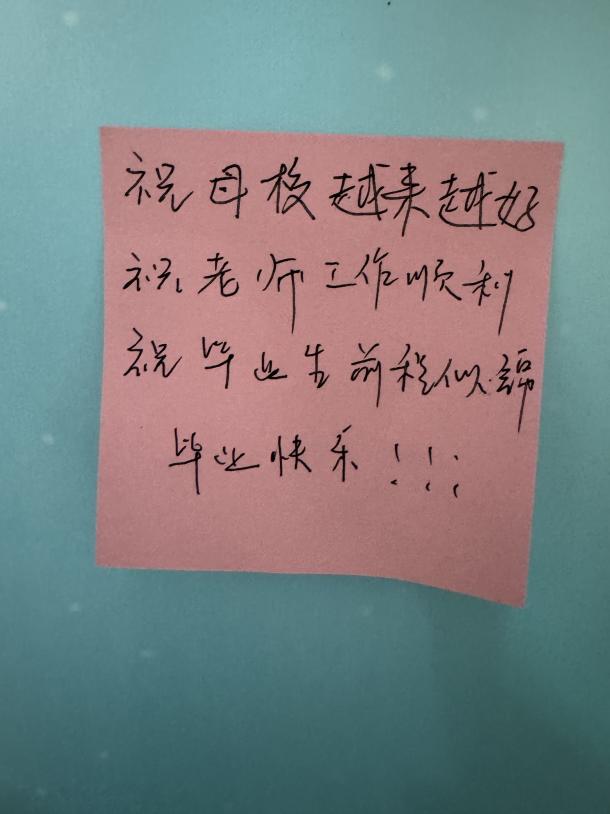 祝母校越来越好
祝老师工作顺利
祝毕业生前程似锦
毕业快乐!!!